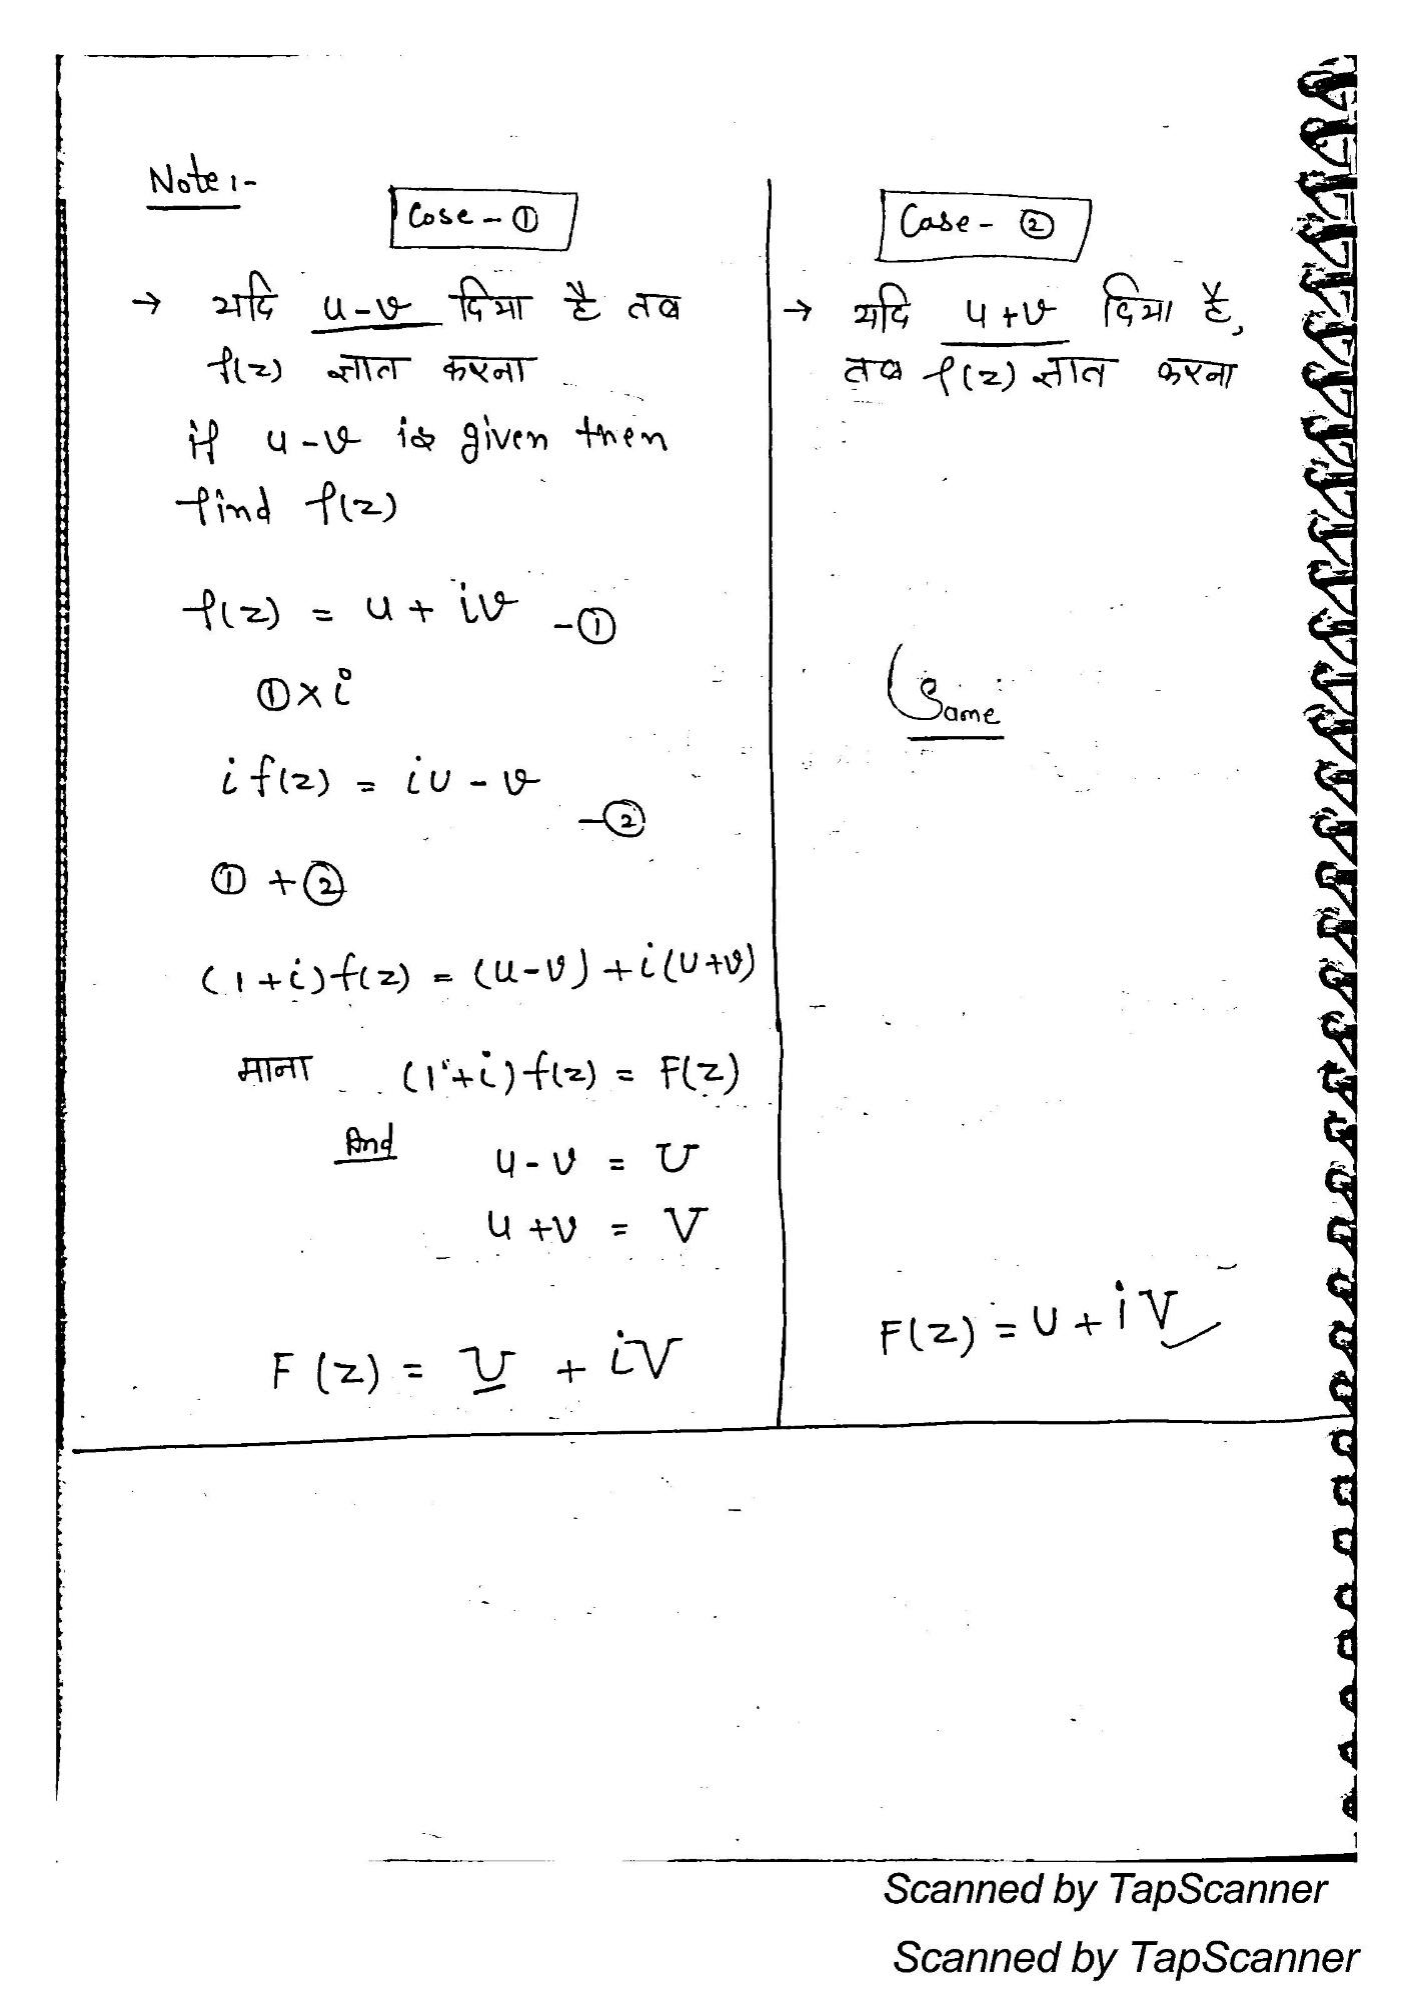 Note :-
Case - ①
→ यदि u-v दिया है तब
f(z) ज्ञात करना
if u-v is given then
find f(z)
f(z) = u + iv -①
① × i
i f(z) = iu - v -②
① + ②
(1+i) f(z) = (u-v) + i(u+v)
माना (1+i) f(z) = F(z)
And u - v = U
u + v = V
F(z) = U + iV
Case - ②
→ यदि u+v दिया है,
तब f(z) ज्ञात करना
Same
F(z) = U + iV
Scanned by TapScanner
Scanned by TapScanner